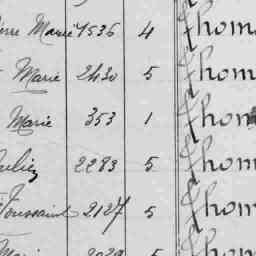 Marie 4536 4 Thom
Marie 2430 5 Thom
Marie 353 1 Thom
2283 5 Thom
Toussaint 2127 5 Thom